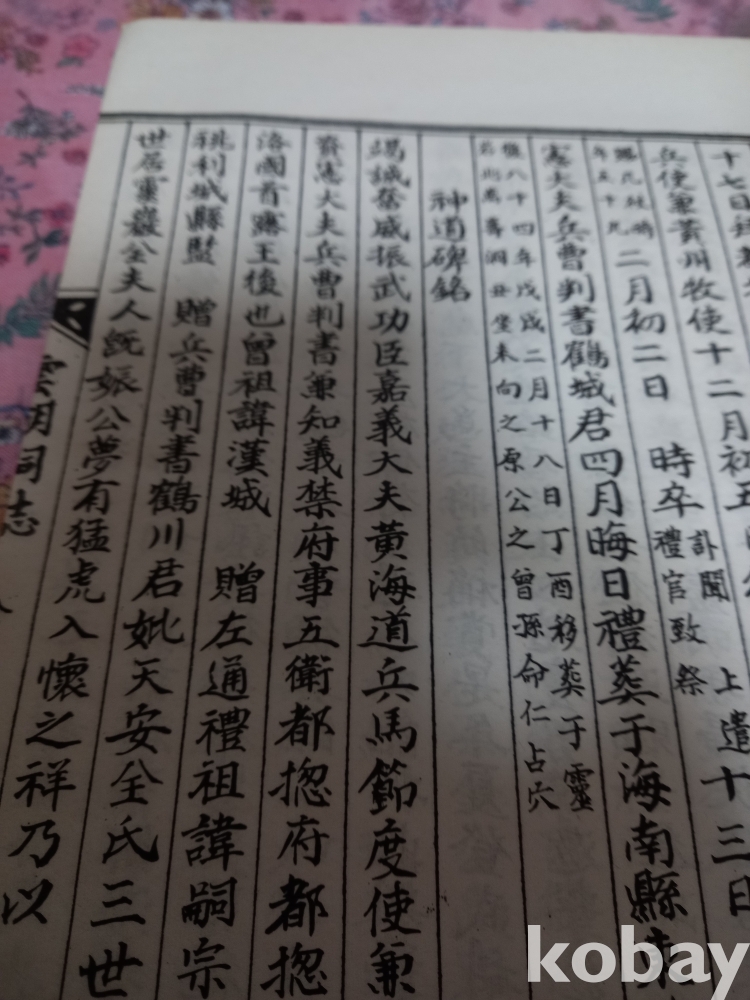 十七日
兵使兼黃州牧使十二月初五
年五十九
二月初二日 時卒
訃聞
禮官致祭
上遣十三日
憲大夫兵曹判書鶴城君四月晦日禮葬于海南縣
後八十四年戊戌二月十八日丁酉移葬于靈
丑坐未向之原公之曾孫命仁占穴
神道碑銘
竭誠奮威振武功臣嘉義大夫黃海道兵馬節度使兼
資憲大夫兵曹判書兼知義禁府事五衛都摠府都摠
洛國首露王後也曾祖諱漢城 贈左通禮祖諱嗣宗
利城縣監 贈兵曹判書鶴川君妣天安全氏三世
世居靈巖全夫人旣娠公夢有猛虎入懷之祥乃以
祠志
kobay